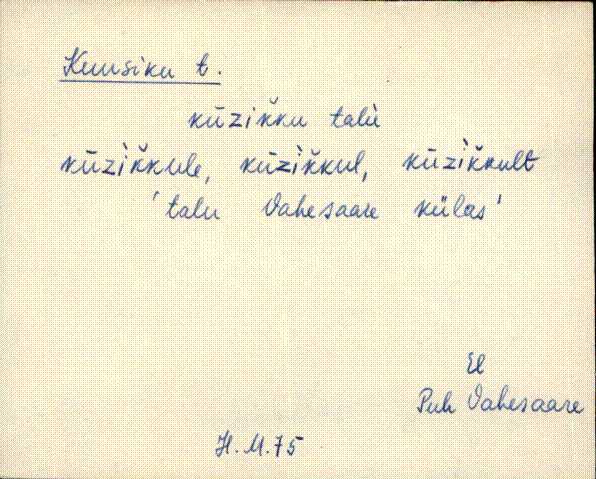 Kuusiku t.
kūzik̆ku talù
kūzìk̆kule, kūzìk̆kul, kūzìk̆kult
'talu Vahesaare külas'
El
Puh Vahesaare
H.M.75